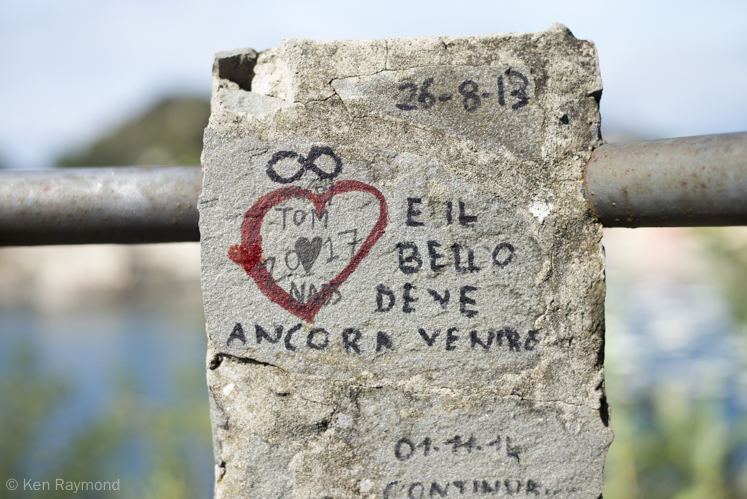 26-8-13
∞
TOM
2017
E IL
BELLO
DEVE
ANCORA VENIRE
01.11.14
CONTINUA...
© Ken Raymond